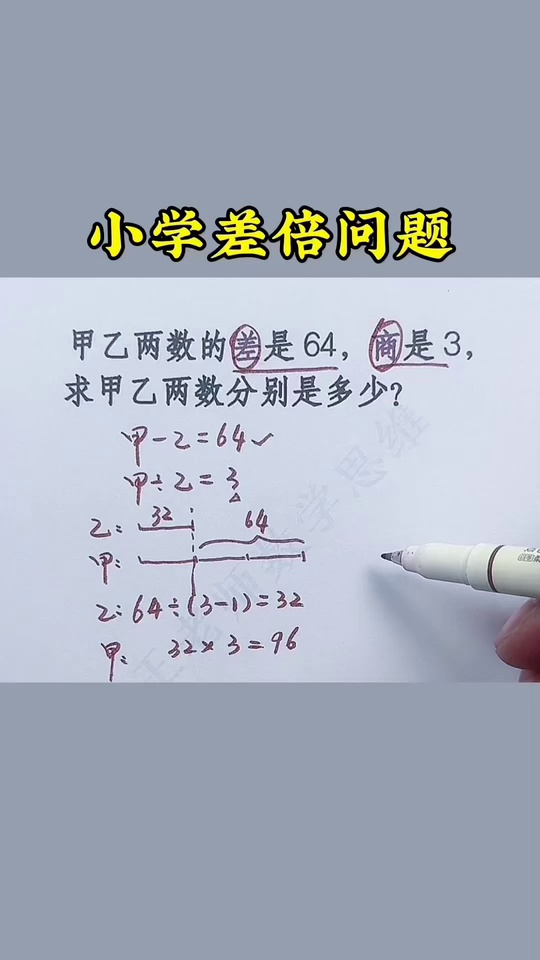 小学差倍问题
甲乙两数的差是64，商是3，
求甲乙两数分别是多少？
甲-乙=64✓
甲÷乙=3
乙: 32
64
甲:
乙: 64÷(3-1)=32
甲: 32×3=96
王老师数学思维